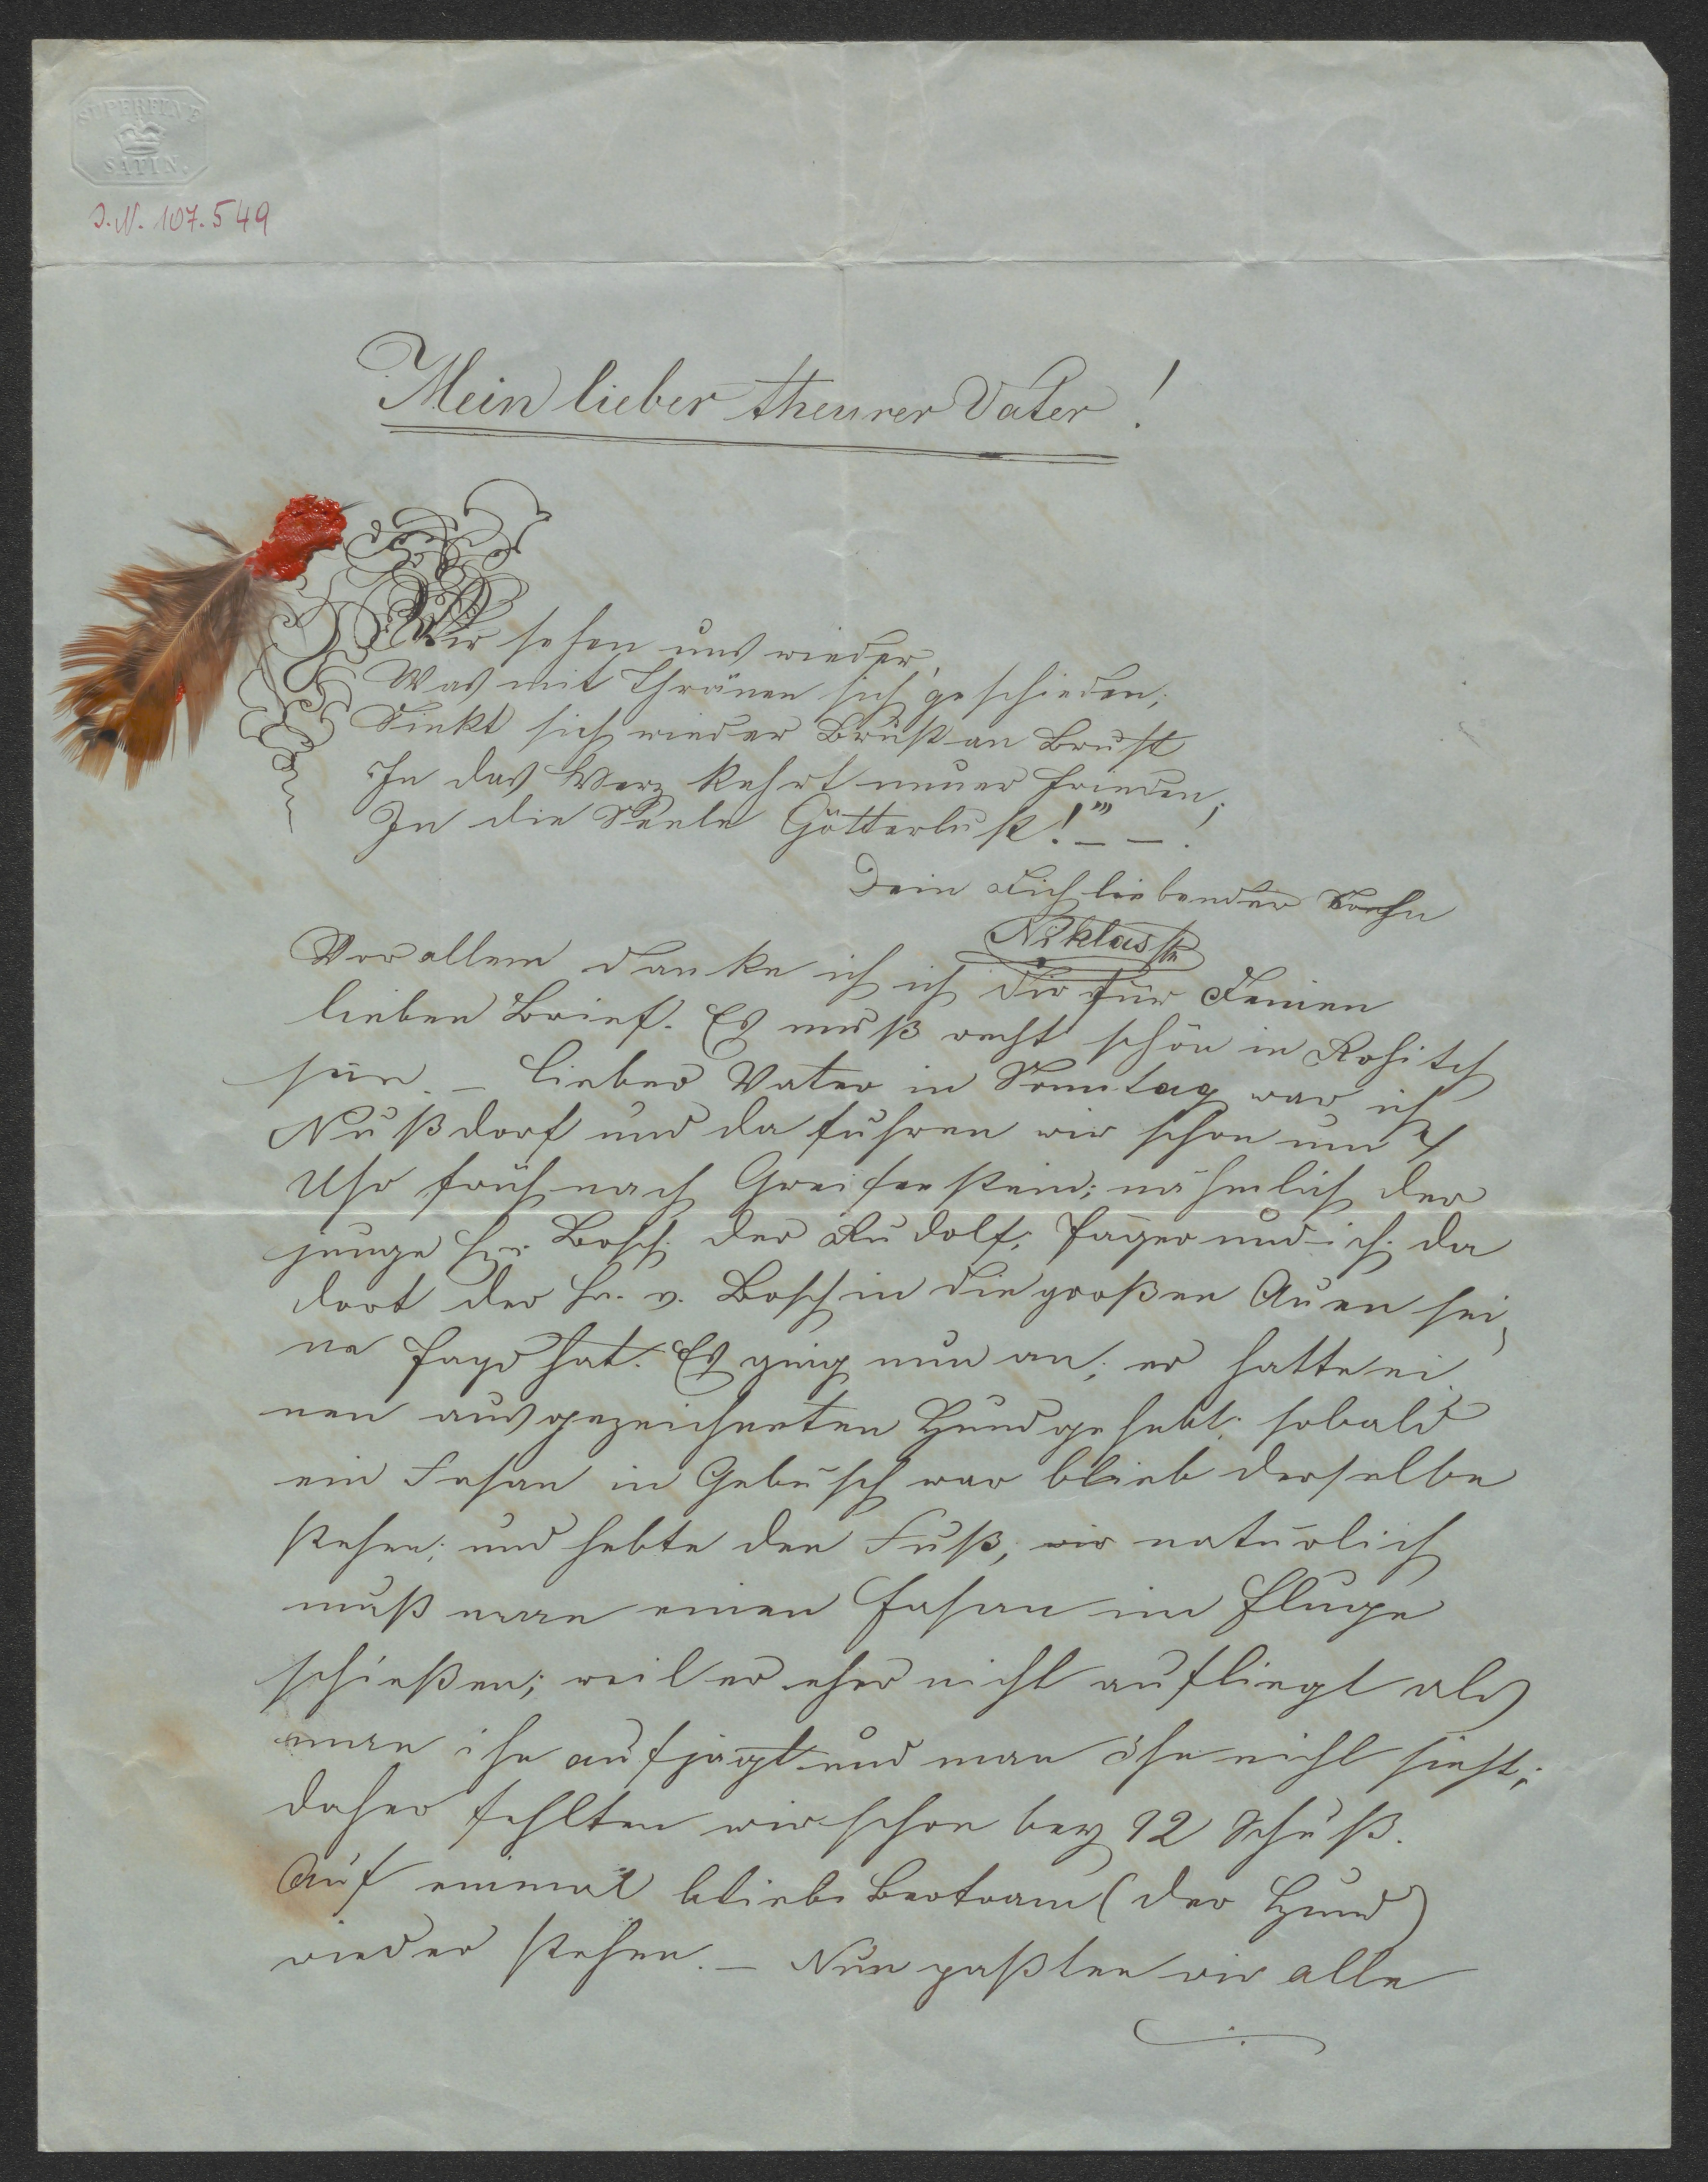 SUPERFINE
SATIN.
I.N. 107.549
Mein lieber theurer Vater!
Wir sehen uns wieder,
Was mit Thränen sich geschieden;
Sinkt sich wieder Brust an Brust
In das Herz kehrt neuer Frieden;
In die Seele Götterlust!"' – – !
Dein dich liebender Sohn
Niklas
Vor allem danke ich ich dir für Deinen
lieben Brief. Es muß recht schön in Rohitsch
sein. – Lieber Vater in Sonntag war ich
Nußdorf und da fuhren wir schon um 4
Uhr früh nach Greifenstein; nähmlich der
junge Hr. Bosch; der Rudolf; Jäger und ich; da
dort der Hr. v. Bosch in die großen Auen sei
ne Jagd hat. Es ging nun an; er hatte ei
nen ausgezeichneten Hund gehabt; sobald
ein Fasan in Gebüsch war blieb derselbe
stehen; und hebte den Fuß, wir natürlich
muß man einen Fasan im Fluge
schießen; weil er eher nicht aufliegt als
man ihn aufjagt und man ihn nicht sieht;
daher fehlten wir schon bey 12 Schuß.
Auf einmal blieb Bertram (der Hund)
wieder stehen. – Nun paßten wir alle